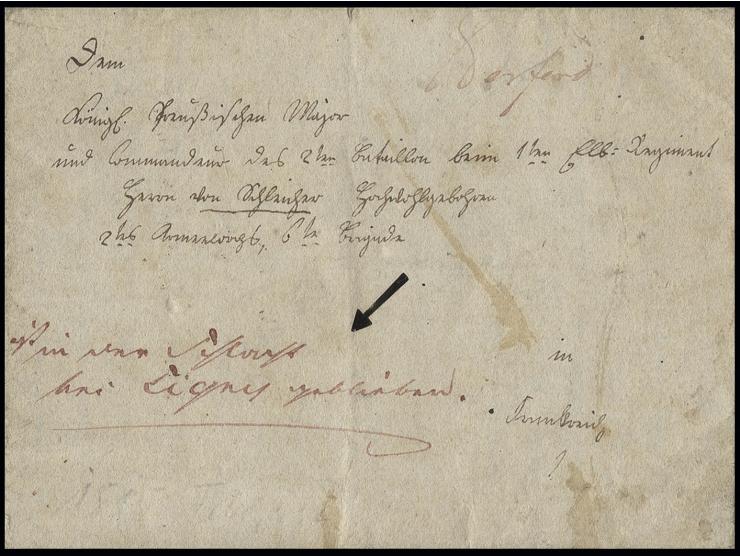 Herford
Dem
Königl. Preußischen Major
und Commandeur des 2ten Bataillon beim 1ten Elb= Regiment
Herrn von Schleicher Hochwohlgebohren
2tes Armeecorps, 6te Brigade
ist in der Schlacht
bei Ligny geblieben.
in
Frankreich